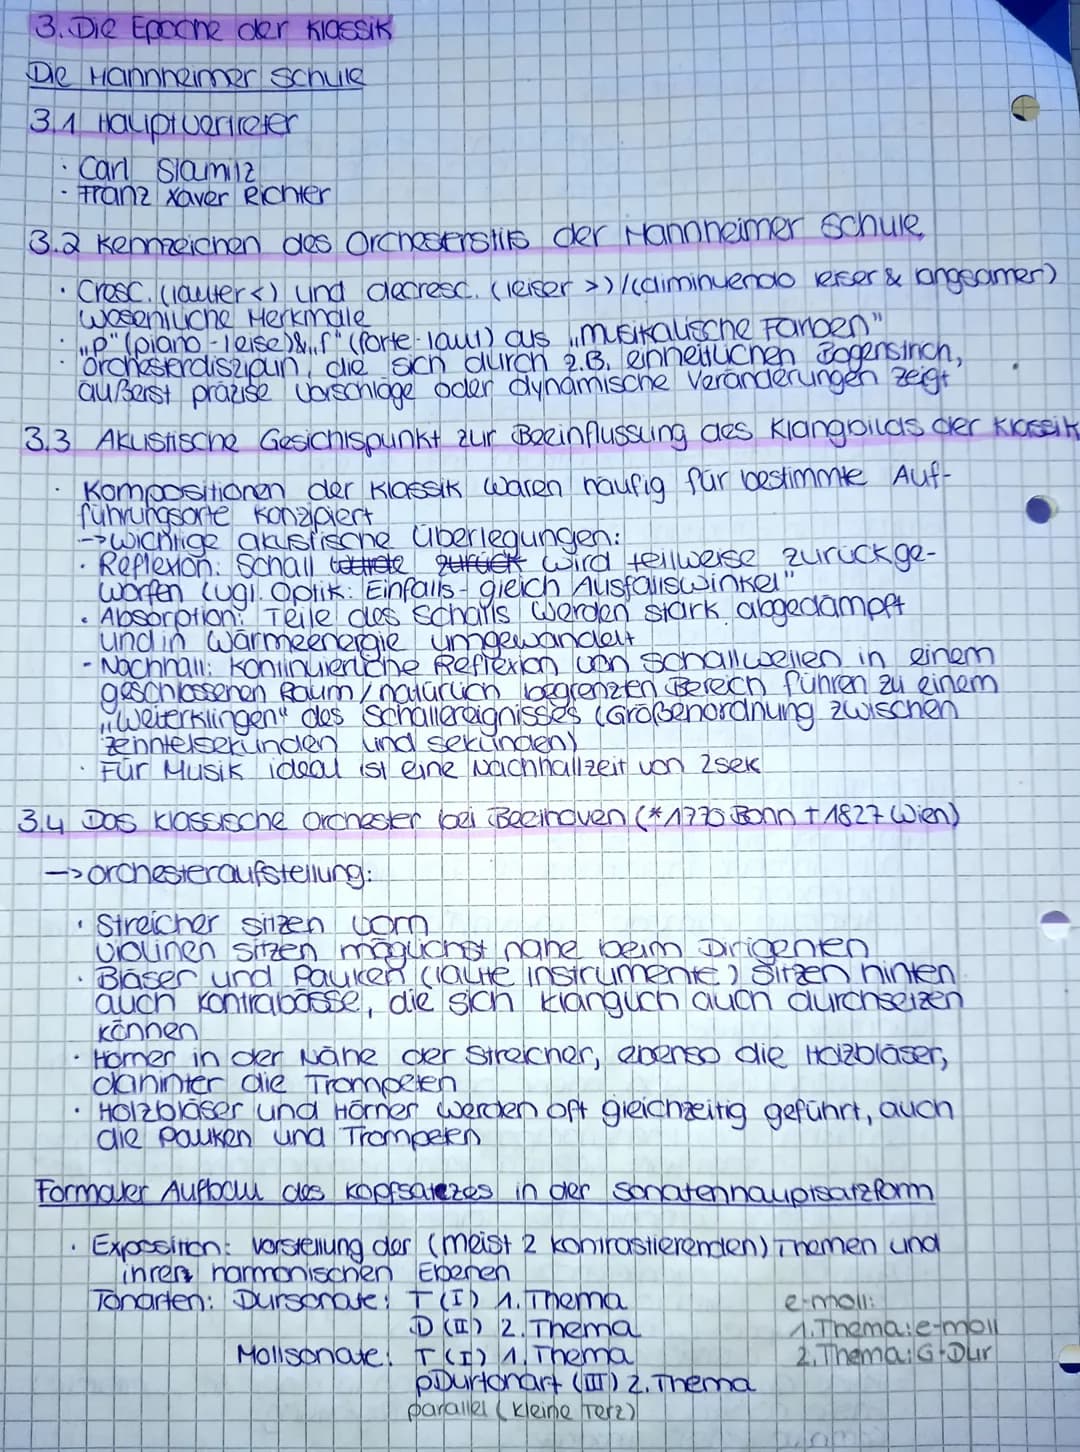 3. Die Epoche der Klassik
Die Mannheimer Schule
3.1 Hauptvertreter
· Carl Stamitz
· Franz Xaver Richter
3.2 Kennzeichen des Orchesterstils der Mannheimer Schule
· Cresc. (lauter <) und decresc. (leiser >) / (diminuendo leiser & langsamer)
wesentliche Merkmale
· „p" (piano - leise) & „f" (forte - laut) als „musikalische Farben"
· Orchesterdisziplin, die sich durch z.B. einheitlichen Bogenstrich,
äußerst präzise Vorschläge oder dynamische Veränderungen zeigt
3.3 Akustische Gesichtspunkt zur Beeinflussung des Klangbilds der Klassik
· Kompositionen der Klassik waren häufig für bestimmte Auf-
führungsorte konzipiert
-> wichtige akustische Überlegungen:
· Reflexion: Schall zurück wird teilweise zurückge-
worfen (vgl. Optik: Einfalls- gleich Ausfallswinkel"
· Absorption: Teile des Schalls werden stark abgedämpft
und in Wärmeenergie umgewandelt
- Nachhall: kontinuierliche Reflexion von Schallwellen in einem
geschlossenen Raum/natürlich begrenzten Bereich führen zu einem
„Weiterklingen" des Schallereignisses (Größenordnung zwischen
Zehntelsekunden und Sekunden)
· Für Musik ideal ist eine Nachhallzeit von 2sek
3.4 Das klassische Orchester bei Beethoven (*1770 Bonn † 1827 Wien)
-> Orchesteraufstellung:
· Streicher sitzen vorn
Violinen sitzen möglichst nahe beim Dirigenten
· Bläser und Pauken (laute Instrumente) sitzen hinten
auch Kontrabässe, die sich klanglich auch durchsetzen
können
· Hörner in der Nähe der Streicher, ebenso die Holzbläser,
dahinter die Trompeten
· Holzbläser und Hörner werden oft gleichzeitig geführt, auch
die Pauken und Trompeten
Formaler Aufbau des Kopfsatzes in der Sonatenhauptsatzform
· Exposition: Vorstellung der (meist 2 kontrastierenden) Themen und
ihren harmonischen Ebenen
Tonarten: Dursonate: T (I) 1. Thema
D (II) 2. Thema
Mollsonate: T (I) 1. Thema
pDurtonart (III) 2. Thema
parallel (kleine Terz)
e-moll:
1. Thema: e-moll
2. Thema: G-Dur